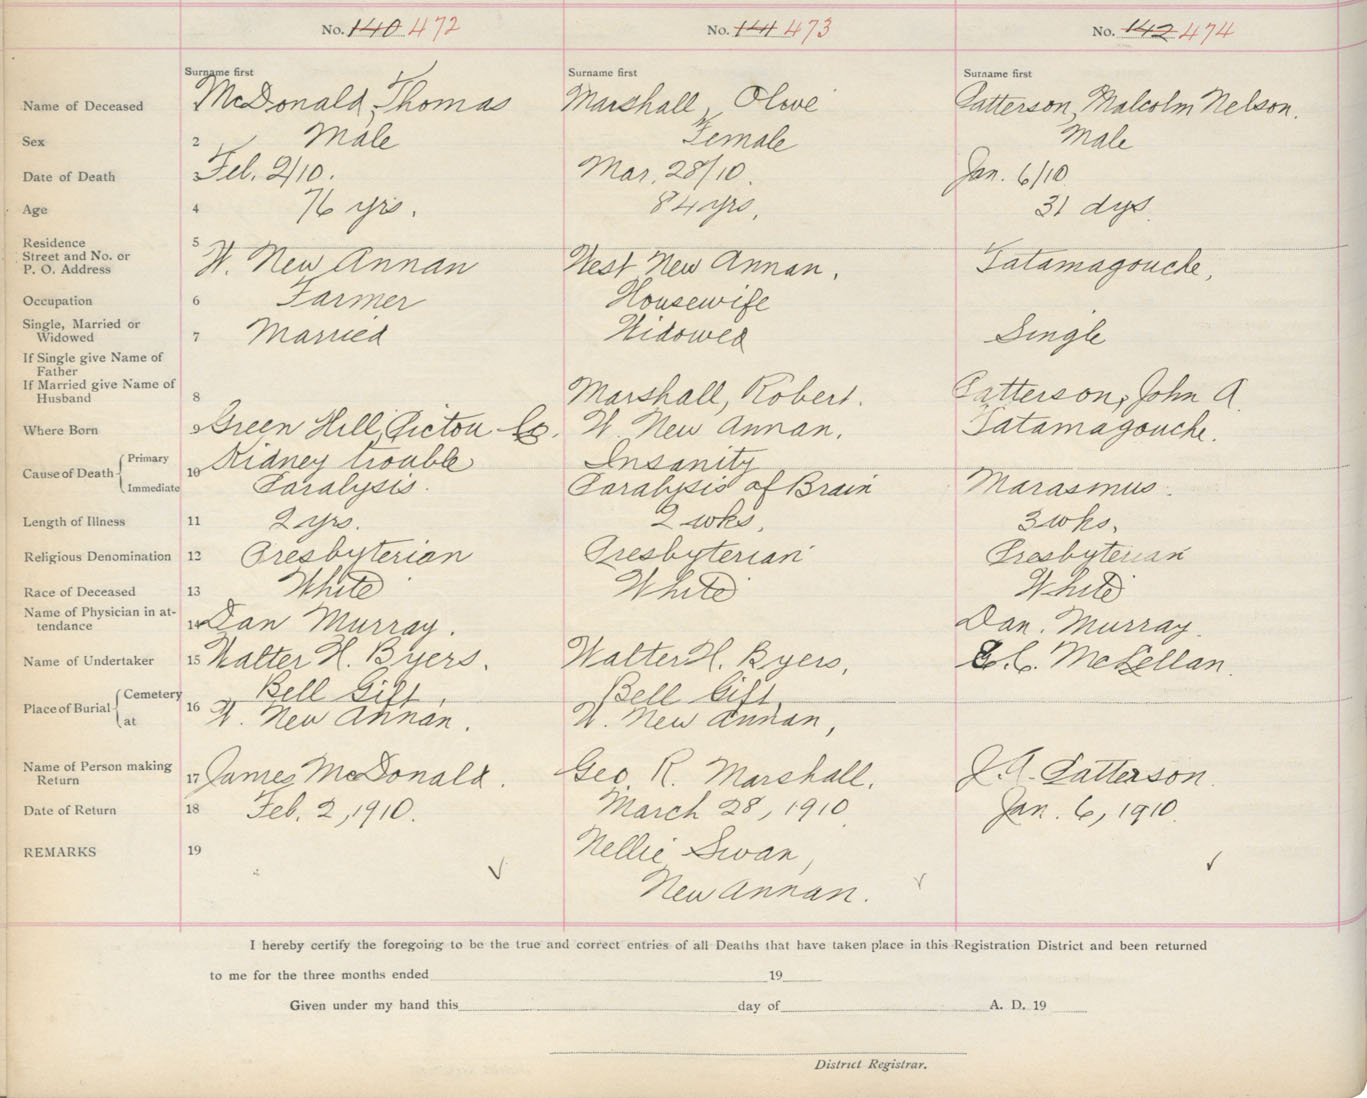 No. 140 472 No. 141 473 No. 142 474
Surname first Surname first Surname first
Name of Deceased 1 McDonald, Thomas Marshall, Olive Patterson, Malcolm Nelson.
Sex 2 Male Female Male
Date of Death 3 Feb. 2/10. Mar. 28/10. Jan. 6/10
Age 4 76 yrs. 84 yrs. 31 dys.
Residence 5
Street and No. or
P. O. Address W. New Annan West New Annan. Tatamagouche,
Occupation 6 Farmer Housewife
Single, Married or
Widowed 7 Married Widowed Single
If Single give Name of
Father
If Married give Name of
Husband 8 Marshall, Robert. Patterson, John A.
Where Born 9 Green Hill, Pictou Co. W. New Annan. Tatamagouche.
Cause of Death Primary 10 Kidney trouble Insanity
Immediate Paralysis. Paralysis of Brain Marasmus.
Length of Illness 11 2 yrs. 2 wks. 3 wks.
Religious Denomination 12 Presbyterian Presbyterian Presbyterian
Race of Deceased 13 White White White
Name of Physician in at-
tendance 14 Dan Murray. Dan. Murray.
Name of Undertaker 15 Walter H. Byers. Walter H. Byers, McLellan.
Place of Burial Cemetery 16 Bell Gift, Bell Gift,
at W. New Annan. W. New Annan,
Name of Person making
Return 17 James McDonald. Geo R. Marshall. J. A. Patterson.
Date of Return 18 Feb. 2, 1910. March 28, 1910 Jan. 6, 1910.
REMARKS 19 Nellie Swan,
New Annan.
I hereby certify the foregoing to be the true and correct entries of all Deaths that have taken place in this Registration District and been returned
to me for the three months ended 19
Given under my hand this day of A. D. 19
District Registrar.